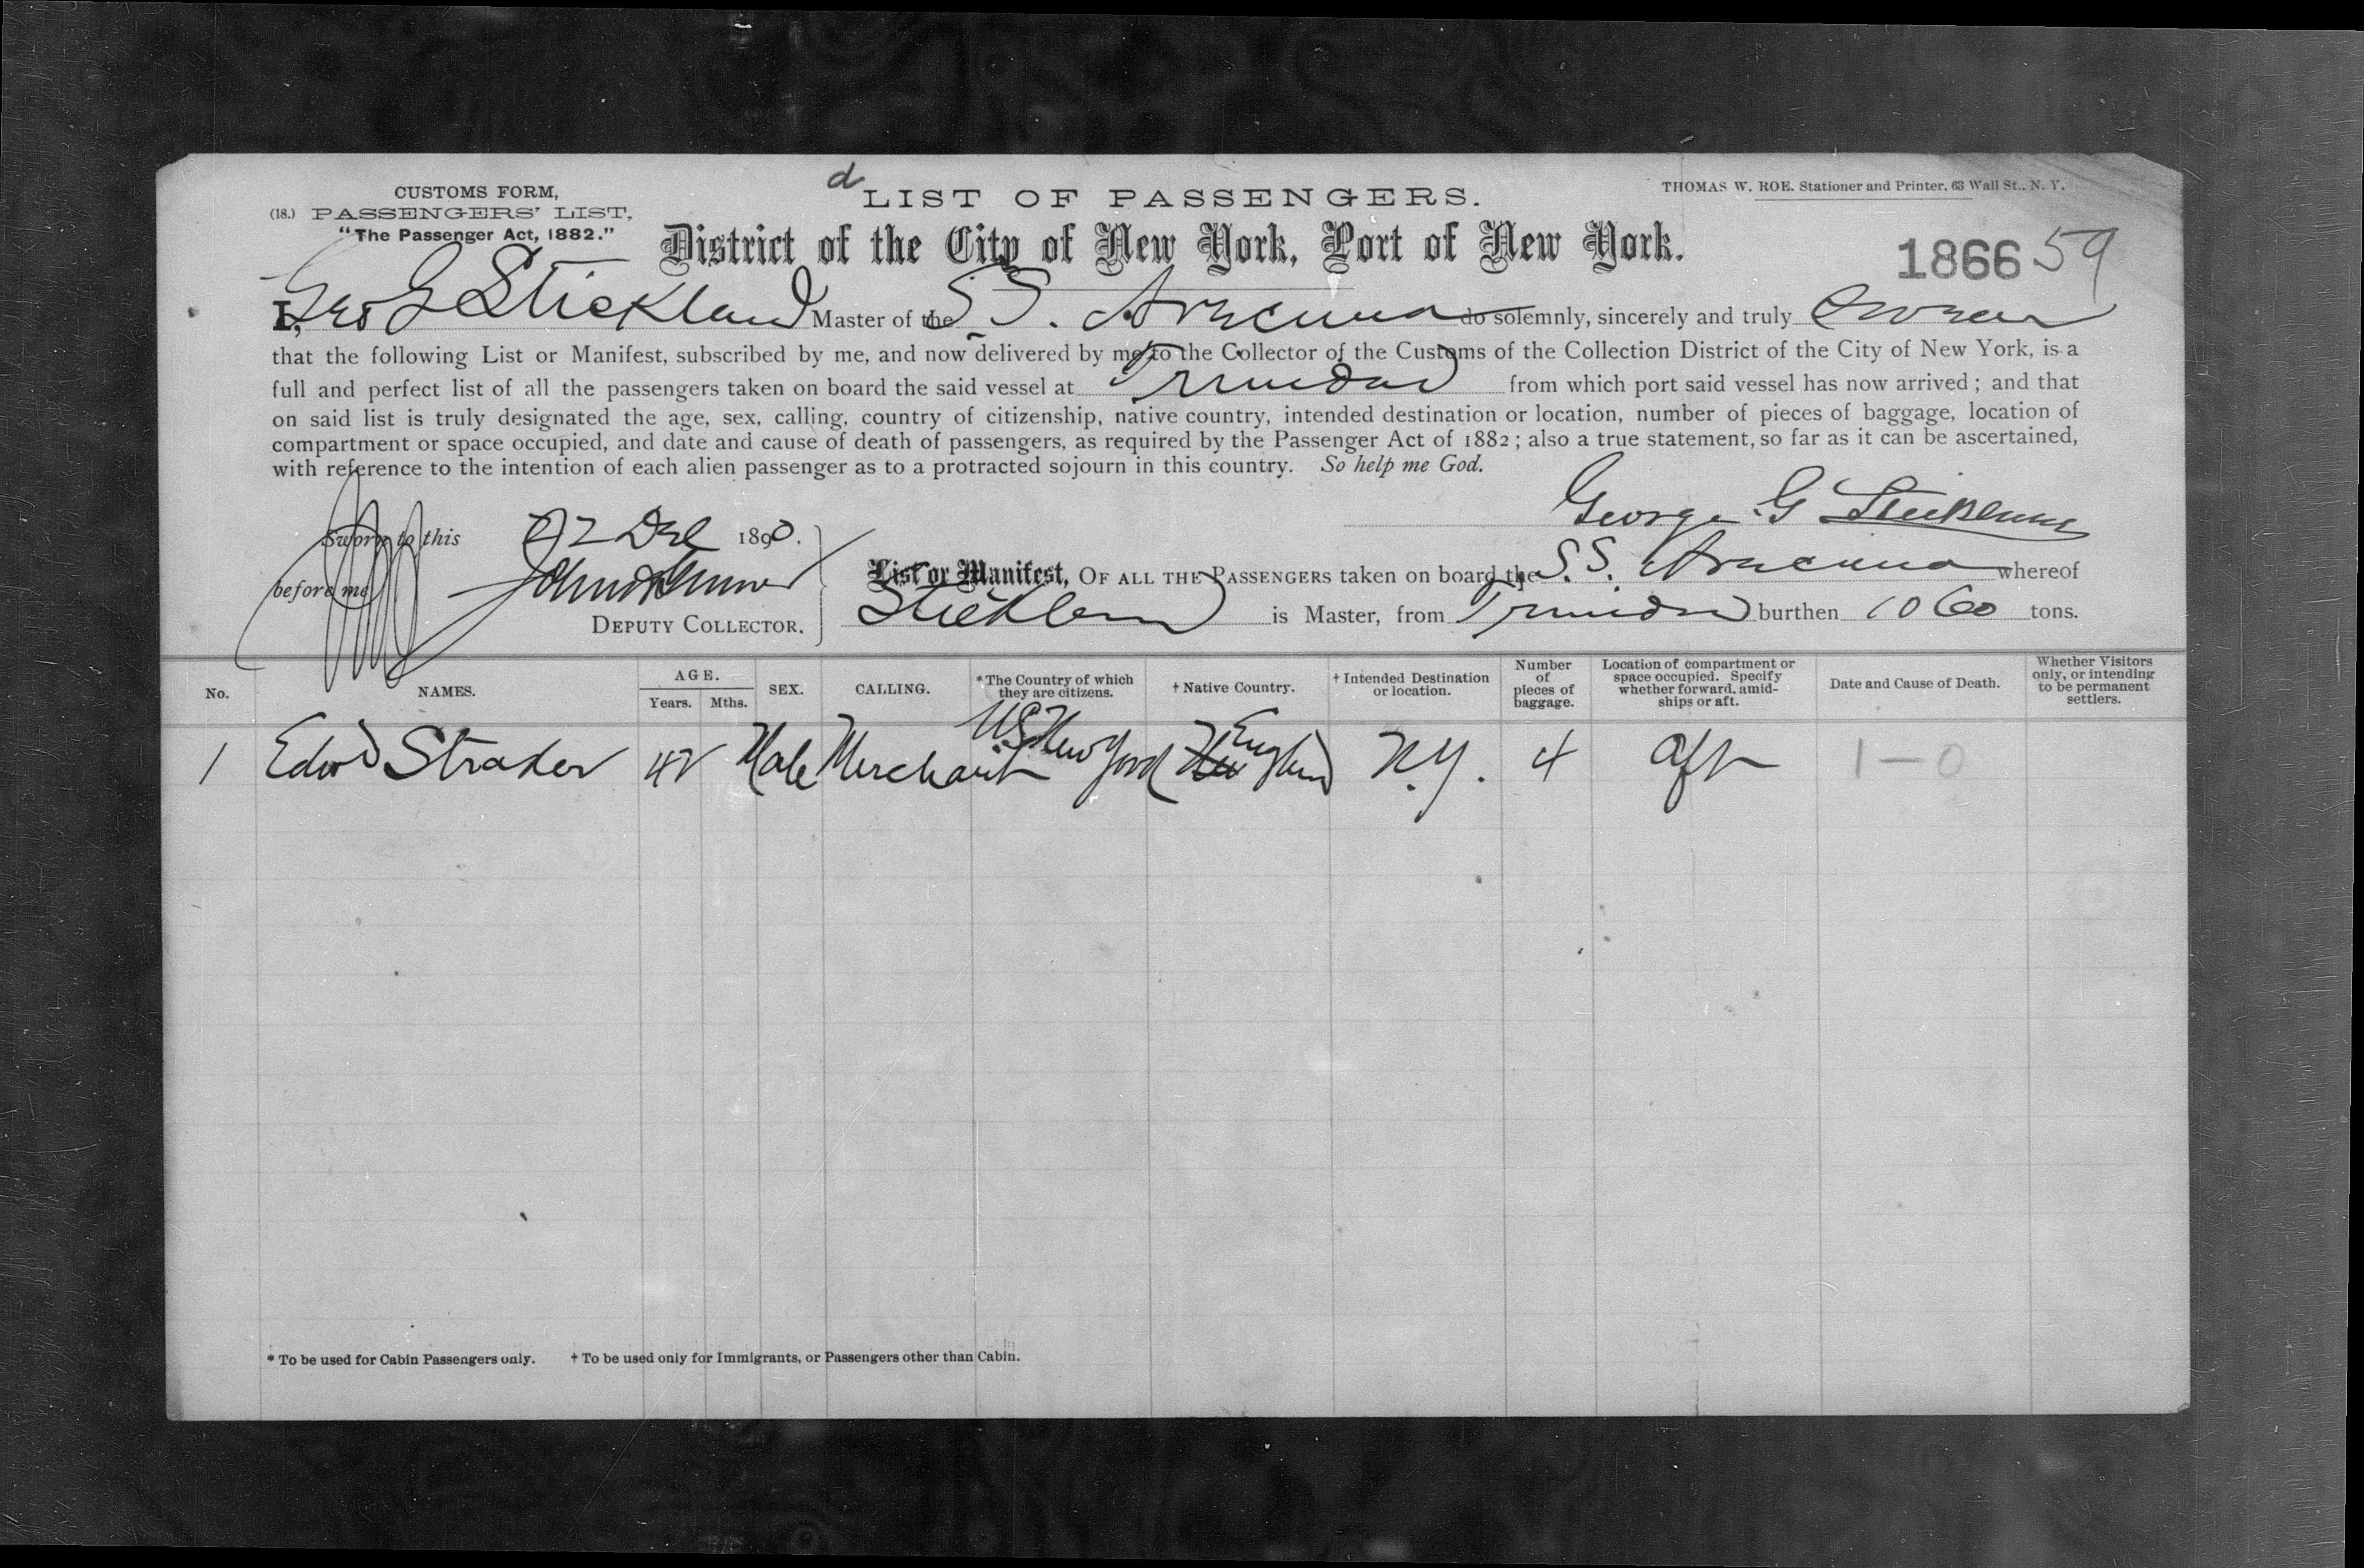 d
CUSTOMS FORM,
(18.) PASSENGERS' LIST,
"The Passenger Act, 1882."
LIST OF PASSENGERS.
THOMAS W. ROE. Stationer and Printer, 63 Wall St., N. Y.
District of the City of New York, Port of New York.
1866 59
I, Geo G Stickland Master of the S.S. Arecuna do solemnly, sincerely and truly swear
that the following List or Manifest, subscribed by me, and now delivered by me to the Collector of the Customs of the Collection District of the City of New York, is a
full and perfect list of all the passengers taken on board the said vessel at Trinidad from which port said vessel has now arrived; and that
on said list is truly designated the age, sex, calling, country of citizenship, native country, intended destination or location, number of pieces of baggage, location of
compartment or space occupied, and date and cause of death of passengers, as required by the Passenger Act of 1882; also a true statement, so far as it can be ascertained,
with reference to the intention of each alien passenger as to a protracted sojourn in this country. So help me God.
George G Stickland
Sworn to this 22 Dec 1890.
before me
DEPUTY COLLECTOR.
List or Manifest, OF ALL THE PASSENGERS taken on board the S.S. Arecuna whereof
Stickland is Master, from Trinidad burthen 1060 tons.
No. NAMES. AGE. Years. Mths. SEX. CALLING. *The Country of which they are citizens. † Native Country. † Intended Destination or location. Number of pieces of baggage. Location of compartment or space occupied. Specify whether forward, amidships or aft. Date and Cause of Death. Whether Visitors only, or intending to be permanent settlers.
1 Edwd Straker 42 Male Merchant U.S. New York England N.Y. 4 aft 1-0
* To be used for Cabin Passengers only. † To be used only for Immigrants, or Passengers other than Cabin.